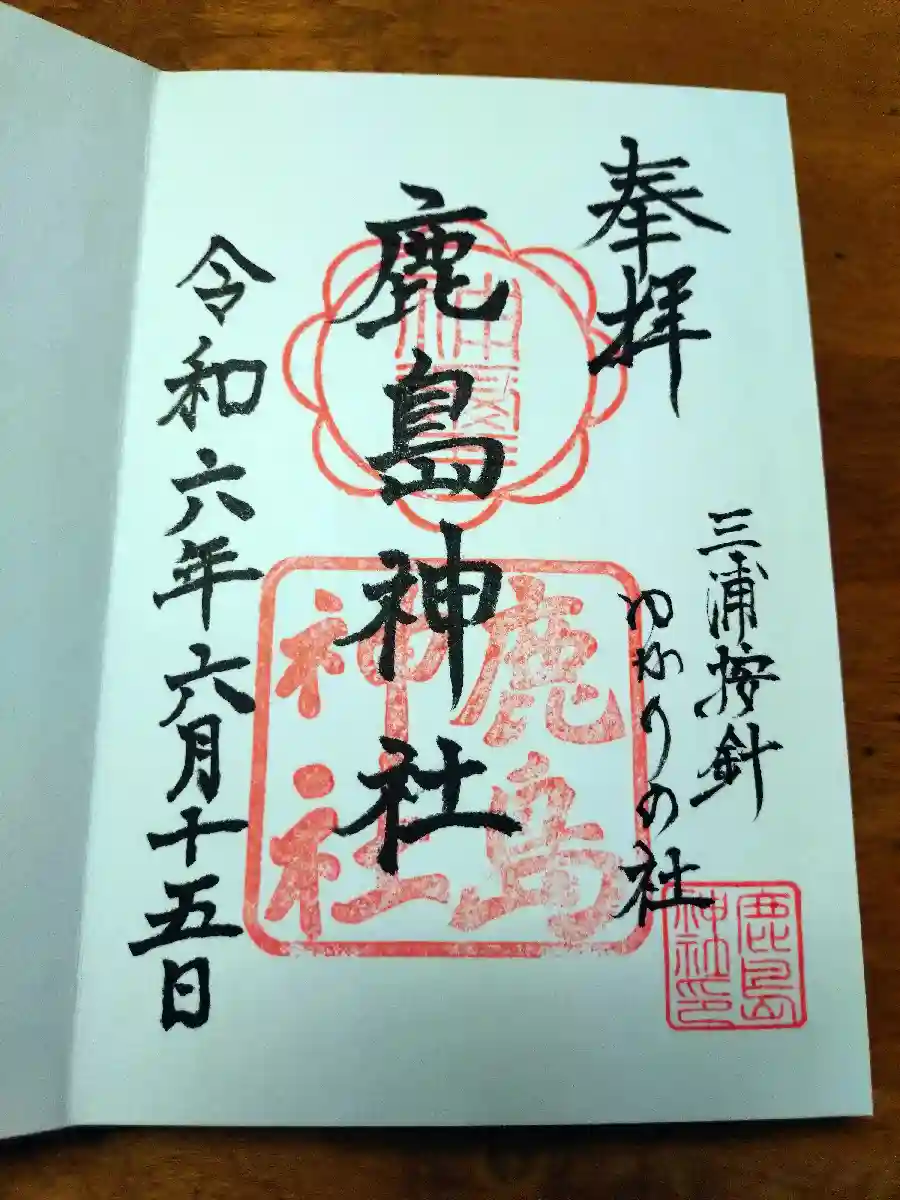 奉拝
三浦按針
ゆかりの社
鹿島神社
令和六年六月十五日
鹿島
神社
鹿島
神社印